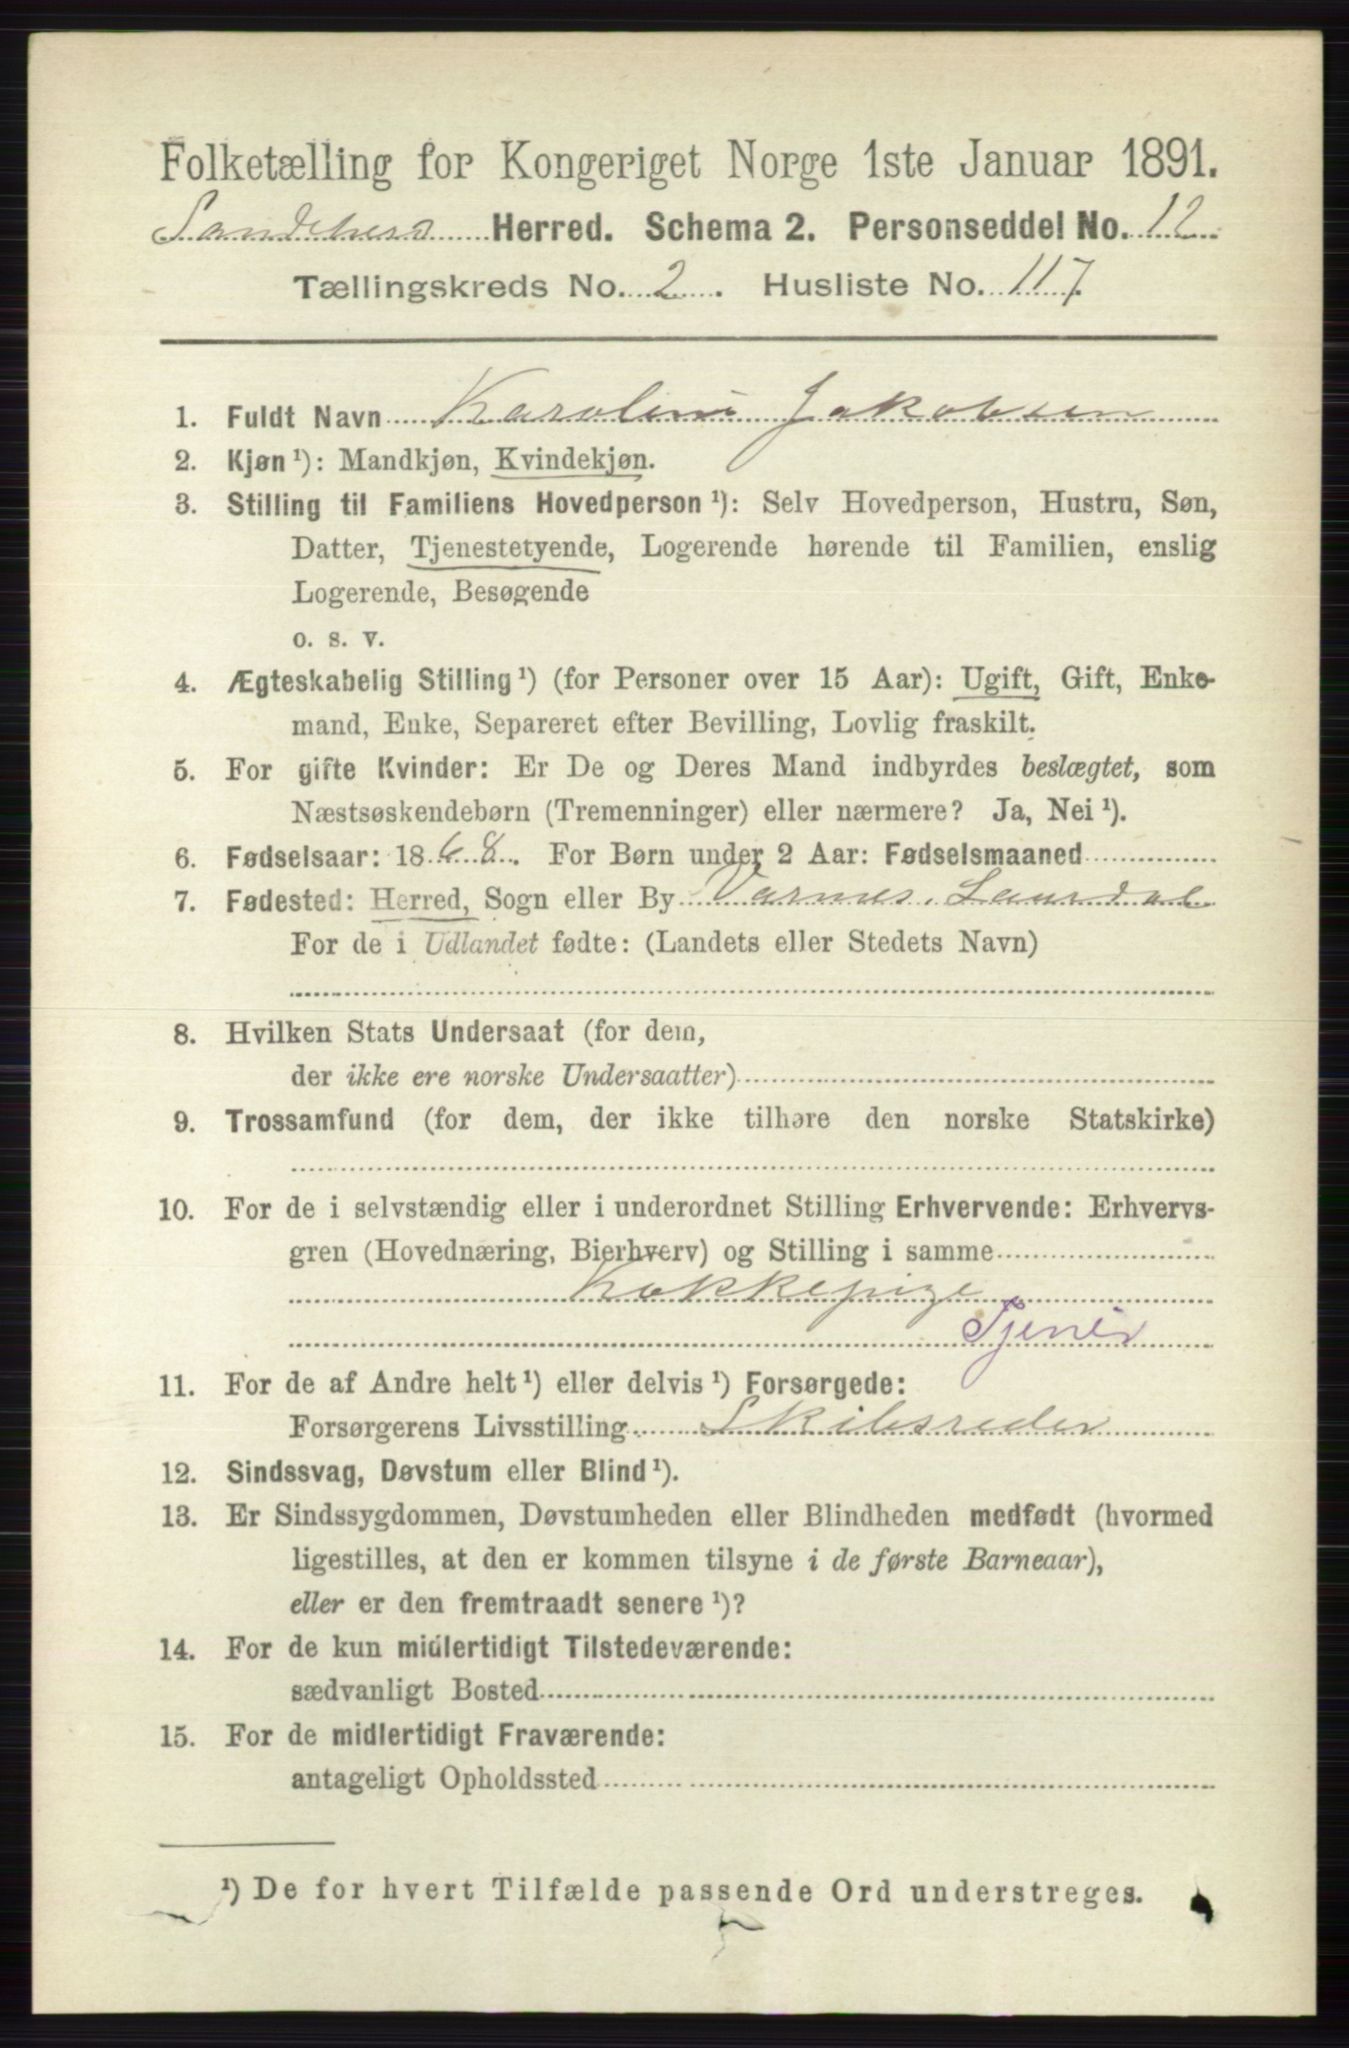 Folketælling for Kongeriget Norge 1ste Januar 1891.
Sandeherd Herred. Schema 2. Personseddel No. 12
Tællingskreds No. 2. Husliste No. 117.
1. Fuldt Navn Karoline Jakobsen
2. Kjøn ¹): Mandkjøn, Kvindekjøn.
3. Stilling til Familiens Hovedperson ¹): Selv Hovedperson, Hustru, Søn,
Datter, Tjenestetyende, Logerende hørende til Familien, enslig
Logerende, Besøgende
o. s. v.
4. Ægteskabelig Stilling ¹) (for Personer over 15 Aar): Ugift, Gift, Enke-
mand, Enke, Separeret efter Bevilling, Lovlig fraskilt.
5. For gifte Kvinder: Er De og Deres Mand indbyrdes beslægtet, som
Næstsøskendebørn (Tremenninger) eller nærmere? Ja, Nei ¹).
6. Fødselsaar: 1868. For Børn under 2 Aar: Fødselsmaaned
7. Fødested: Herred, Sogn eller By Varnes, Laurdal
For de i Udlandet fødte: (Landets eller Stedets Navn)
8. Hvilken Stats Undersaat (for dem,
der ikke ere norske Undersaatter)
9. Trossamfund (for dem, der ikke tilhøre den norske Statskirke)
10. For de i selvstændig eller i underordnet Stilling Erhvervende: Erhvervs-
gren (Hovednæring, Bierhverv) og Stilling i samme
Kokkepige
Tjener
11. For de af Andre helt ¹) eller delvis ¹) Forsørgede:
Forsørgerens Livsstilling Skibsreder
12. Sindssvag, Døvstum eller Blind ¹).
13. Er Sindssygdommen, Døvstumheden eller Blindheden medfødt (hvormed
ligestilles, at den er kommen tilsyne i de første Barneaar),
eller er den fremtraadt senere ¹)?
14. For de kun midlertidigt Tilstedeværende:
sædvanligt Bosted
15. For de midlertidigt Fraværende:
antageligt Opholdssted
¹) De for hvert Tilfælde passende Ord understreges.